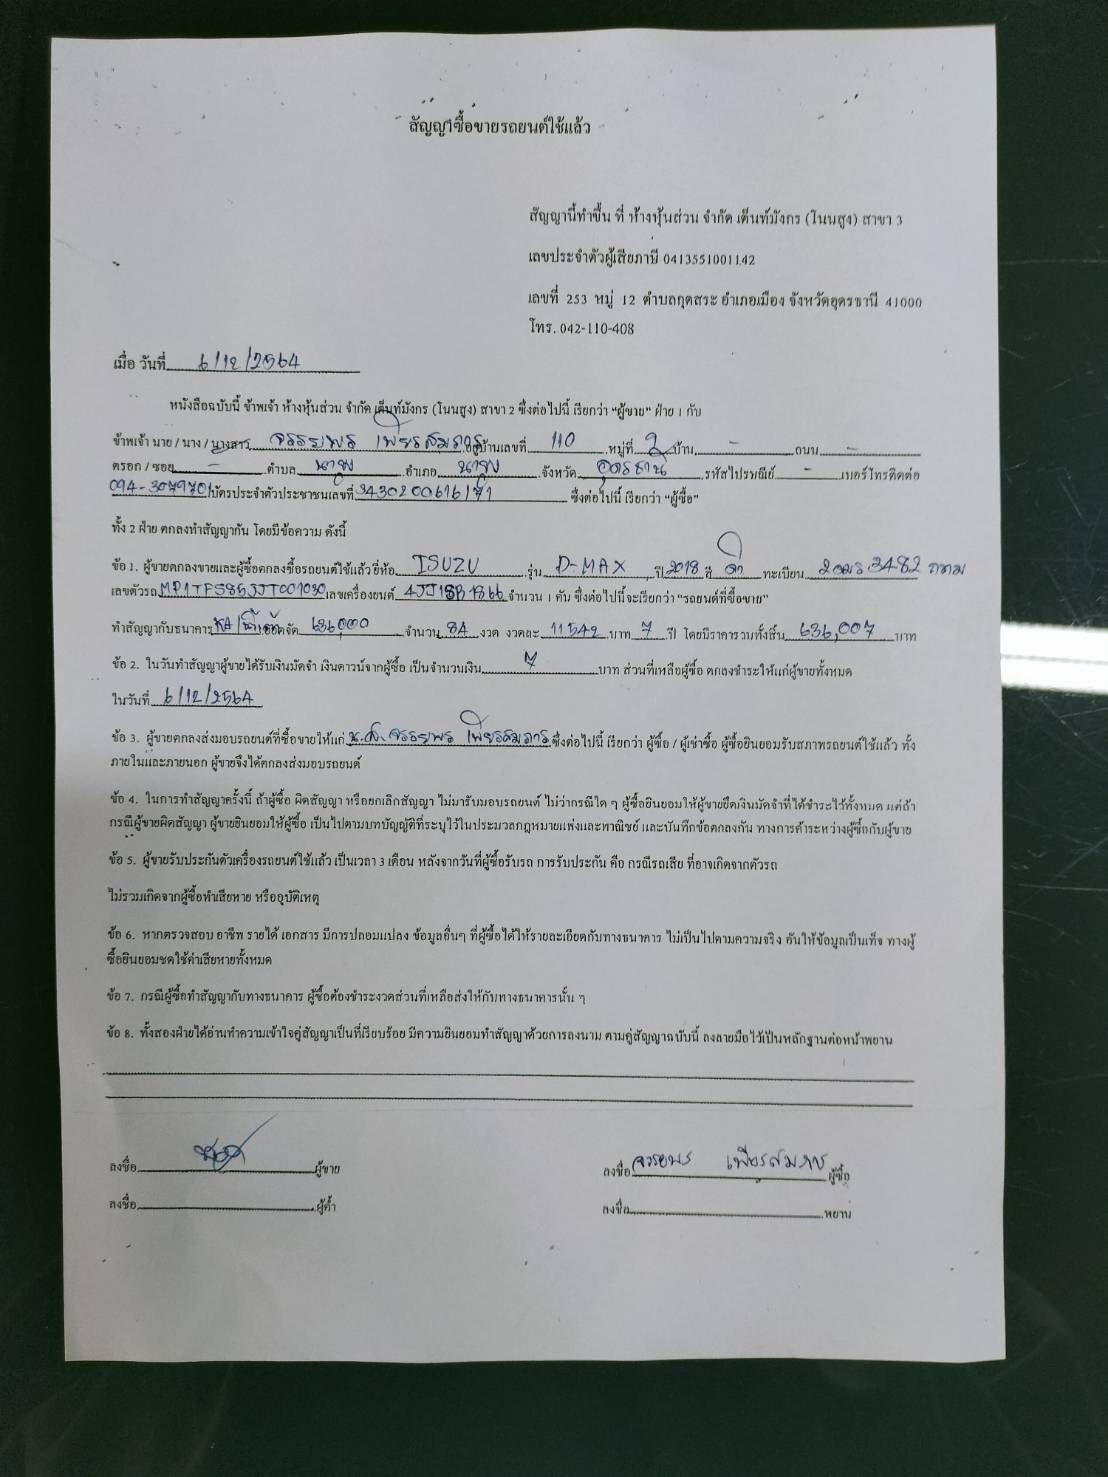 สัญญาซื้อขายรถยนต์ใช้แล้ว
สัญญานี้ทำขึ้น ที่ ห้างหุ้นส่วน จำกัด เต็นท์มังกร (โนนสูง) สาขา 3
เลขประจำตัวผู้เสียภาษี 0413551001142
เลขที่ 253 หมู่ 12 ตำบลกุดสระ อำเภอเมือง จังหวัดอุดรธานี 41000
โทร. 042-110-408
เมื่อ วันที่ 6/12/2564
หนังสือฉบับนี้ ข้าพเจ้า ห้างหุ้นส่วน จำกัด เต็นท์มังกร (โนนสูง) สาขา 2 ซึ่งต่อไปนี้ เรียกว่า "ผู้ขาย" ฝ่าย 1 กับ
ข้าพเจ้า นาย / นาง / นางสาว จรรยพร เพียรสมภาร อยู่บ้านเลขที่ 110 หมู่ที่ 2 บ้าน - ถนน -
ตรอก / ซอย - ตำบล นายูง อำเภอ นายูง จังหวัด อุดรธานี รหัสไปรษณีย์ - เบอร์โทรติดต่อ
บัตรประจำตัวประชาชนเลขที่ ซึ่งต่อไปนี้ เรียกว่า "ผู้ซื้อ"
ทั้ง 2 ฝ่าย ตกลงทำสัญญากัน โดยมีข้อความ ดังนี้
ข้อ 1. ผู้ขายตกลงขายและผู้ซื้อตกลงซื้อรถยนต์ใช้แล้ว ยี่ห้อ ISUZU รุ่น D-MAX ปี 2018 สี ดำ ทะเบียน 3482 กทม
เลขตัวรถ MP1TFS85JJT001030 เลขเครื่องยนต์ 4JJ1SB1866 จำนวน 1 คัน ซึ่งต่อไปนี้จะเรียกว่า "รถยนต์ที่ซื้อขาย"
ทำสัญญากับธนาคาร ยอดจัด 636,000 จำนวน 84 งวด งวดละ 11542 บาท 7 ปี โดยมีราคารวมทั้งสิ้น 636,007 บาท
ข้อ 2. ในวันทำสัญญาผู้ขายได้รับเงินมัดจำ เงินดาวน์จากผู้ซื้อ เป็นจำนวนเงิน 7 บาท ส่วนที่เหลือผู้ซื้อ ตกลงชำระให้แก่ผู้ขายทั้งหมด
ในวันที่ 6/12/2564
ข้อ 3. ผู้ขายตกลงส่งมอบรถยนต์ที่ซื้อขายให้แก่ น.ส. จรรยพร เพียรสมภาร ซึ่งต่อไปนี้ เรียกว่า ผู้ซื้อ / ผู้เช่าซื้อ ผู้ซื้อยินยอมรับสภาพรถยนต์ใช้แล้ว ทั้ง
ภายในและภายนอก ผู้ขายจึงได้ตกลงส่งมอบรถยนต์
ข้อ 4. ในการทำสัญญาครั้งนี้ ถ้าผู้ซื้อ ผิดสัญญา หรือยกเลิกสัญญา ไม่มารับมอบรถยนต์ ไม่ว่ากรณีใด ๆ ผู้ซื้อยินยอมให้ผู้ขายยึดเงินมัดจำที่ได้ชำระไว้ทั้งหมด แต่ถ้า
กรณีผู้ขายผิดสัญญา ผู้ขายยินยอมให้ผู้ซื้อ เป็นไปตามบทบัญญัติที่ระบุไว้ในประมวลกฎหมายแพ่งและพาณิชย์ และบันทึกข้อตกลงกัน ทางการค้าระหว่างผู้ซื้อกับผู้ขาย
ข้อ 5. ผู้ขายรับประกันตัวเครื่องรถยนต์ใช้แล้ว เป็นเวลา 3 เดือน หลังจากวันที่ผู้ซื้อรับรถ การรับประกัน คือ กรณีรถเสีย ที่อาจเกิดจากตัวรถ
ไม่รวมเกิดจากผู้ซื้อทำเสียหาย หรืออุบัติเหตุ
ข้อ 6. หากตรวจสอบ อาชีพ รายได้ เอกสาร มีการปลอมแปลง ข้อมูลอื่นๆ ที่ผู้ซื้อได้ให้รายละเอียดกับทางธนาคาร ไม่เป็นไปตามความจริง อันให้ข้อมูลเป็นเท็จ ทางผู้
ซื้อยินยอมชดใช้ค่าเสียหายทั้งหมด
ข้อ 7. กรณีผู้ซื้อทำสัญญากับทางธนาคาร ผู้ซื้อต้องชำระงวดส่วนที่เหลือส่งให้กับทางธนาคารนั้น ๆ
ข้อ 8. ทั้งสองฝ่ายได้อ่านทำความเข้าใจคู่สัญญาเป็นที่เรียบร้อย มีความยินยอมทำสัญญาด้วยการลงนาม ตามคู่สัญญาฉบับนี้ ลงลายมือไว้เป็นหลักฐานต่อหน้าพยาน
ลงชื่อ ผู้ขาย ลงชื่อ จรรยพร เพียรสมภาร ผู้ซื้อ
ลงชื่อ ผู้ค้ำ ลงชื่อ พยาน